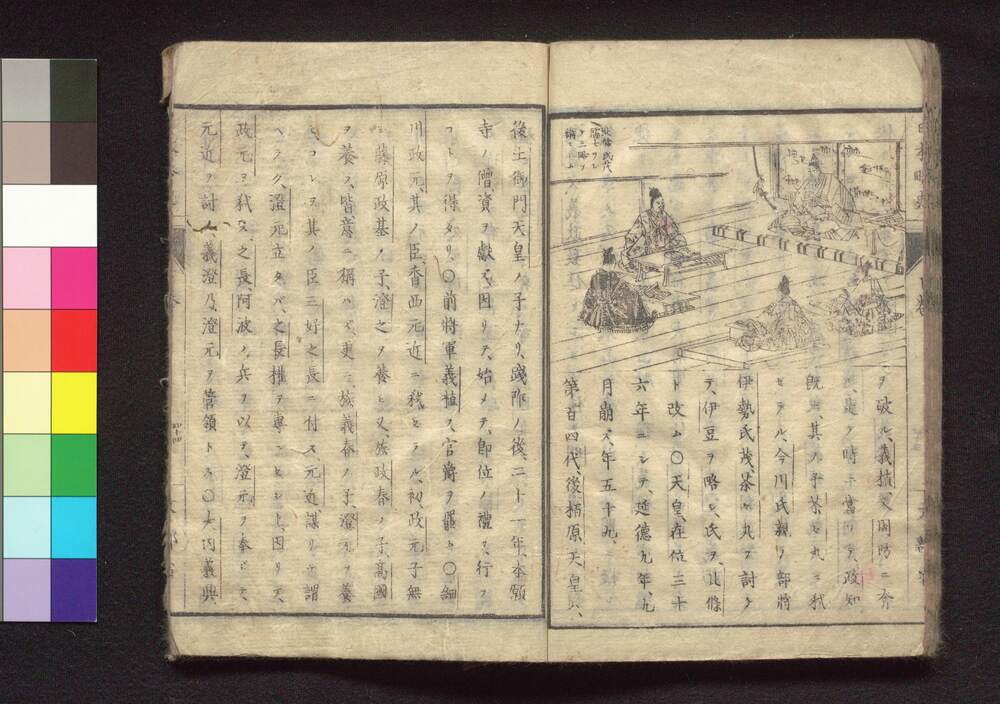 ヲ破ル、義植又周防ニ奔
ル、是ノ時ニ當リテ、政知
既ニ其ノ子茶々丸ニ弑
セラル、今川氏親ノ部將
伊勢氏茂、茶々丸ヲ討チ
テ、伊豆ヲ略シ、氏ヲ北條
ト改ム〇天皇、在位三十
六年ニシテ、延德九年、九
月崩ス、年五十九、
第百四代、後柏原天皇ハ、
後土御門天皇ノ子ナリ、踐阼ノ後、二十一年、本願
寺ノ僧資ヲ獻ズ、因リテ、始メテ、即位ノ禮ヲ、行フ
コトヲ得タリ〇前將軍義植ス、官爵ヲ罷ム〇細
川政元、其ノ臣、香西元近ニ弑セラル、初、政元子無
シ、藤原政基ノ子、澄之ヲ養ヒ、又、族政春ノ子、高國
ヲ養フ、皆意ニ稱ハズ、更ニ、族義春ノ子、澄元ヲ養
ヒ、コレヲ其ノ臣三好之長ニ付ス、元近、謀リテ謂
ヘラク、澄元立タバ、之長權ヲ專ニセント、因リテ、
政元ヲ弑ス、之長、阿波ノ兵ヲ以テ、澄元ヲ奉ジテ、
元近ヲ討ち、義澄乃、澄元ヲ管領トス〇大内義興